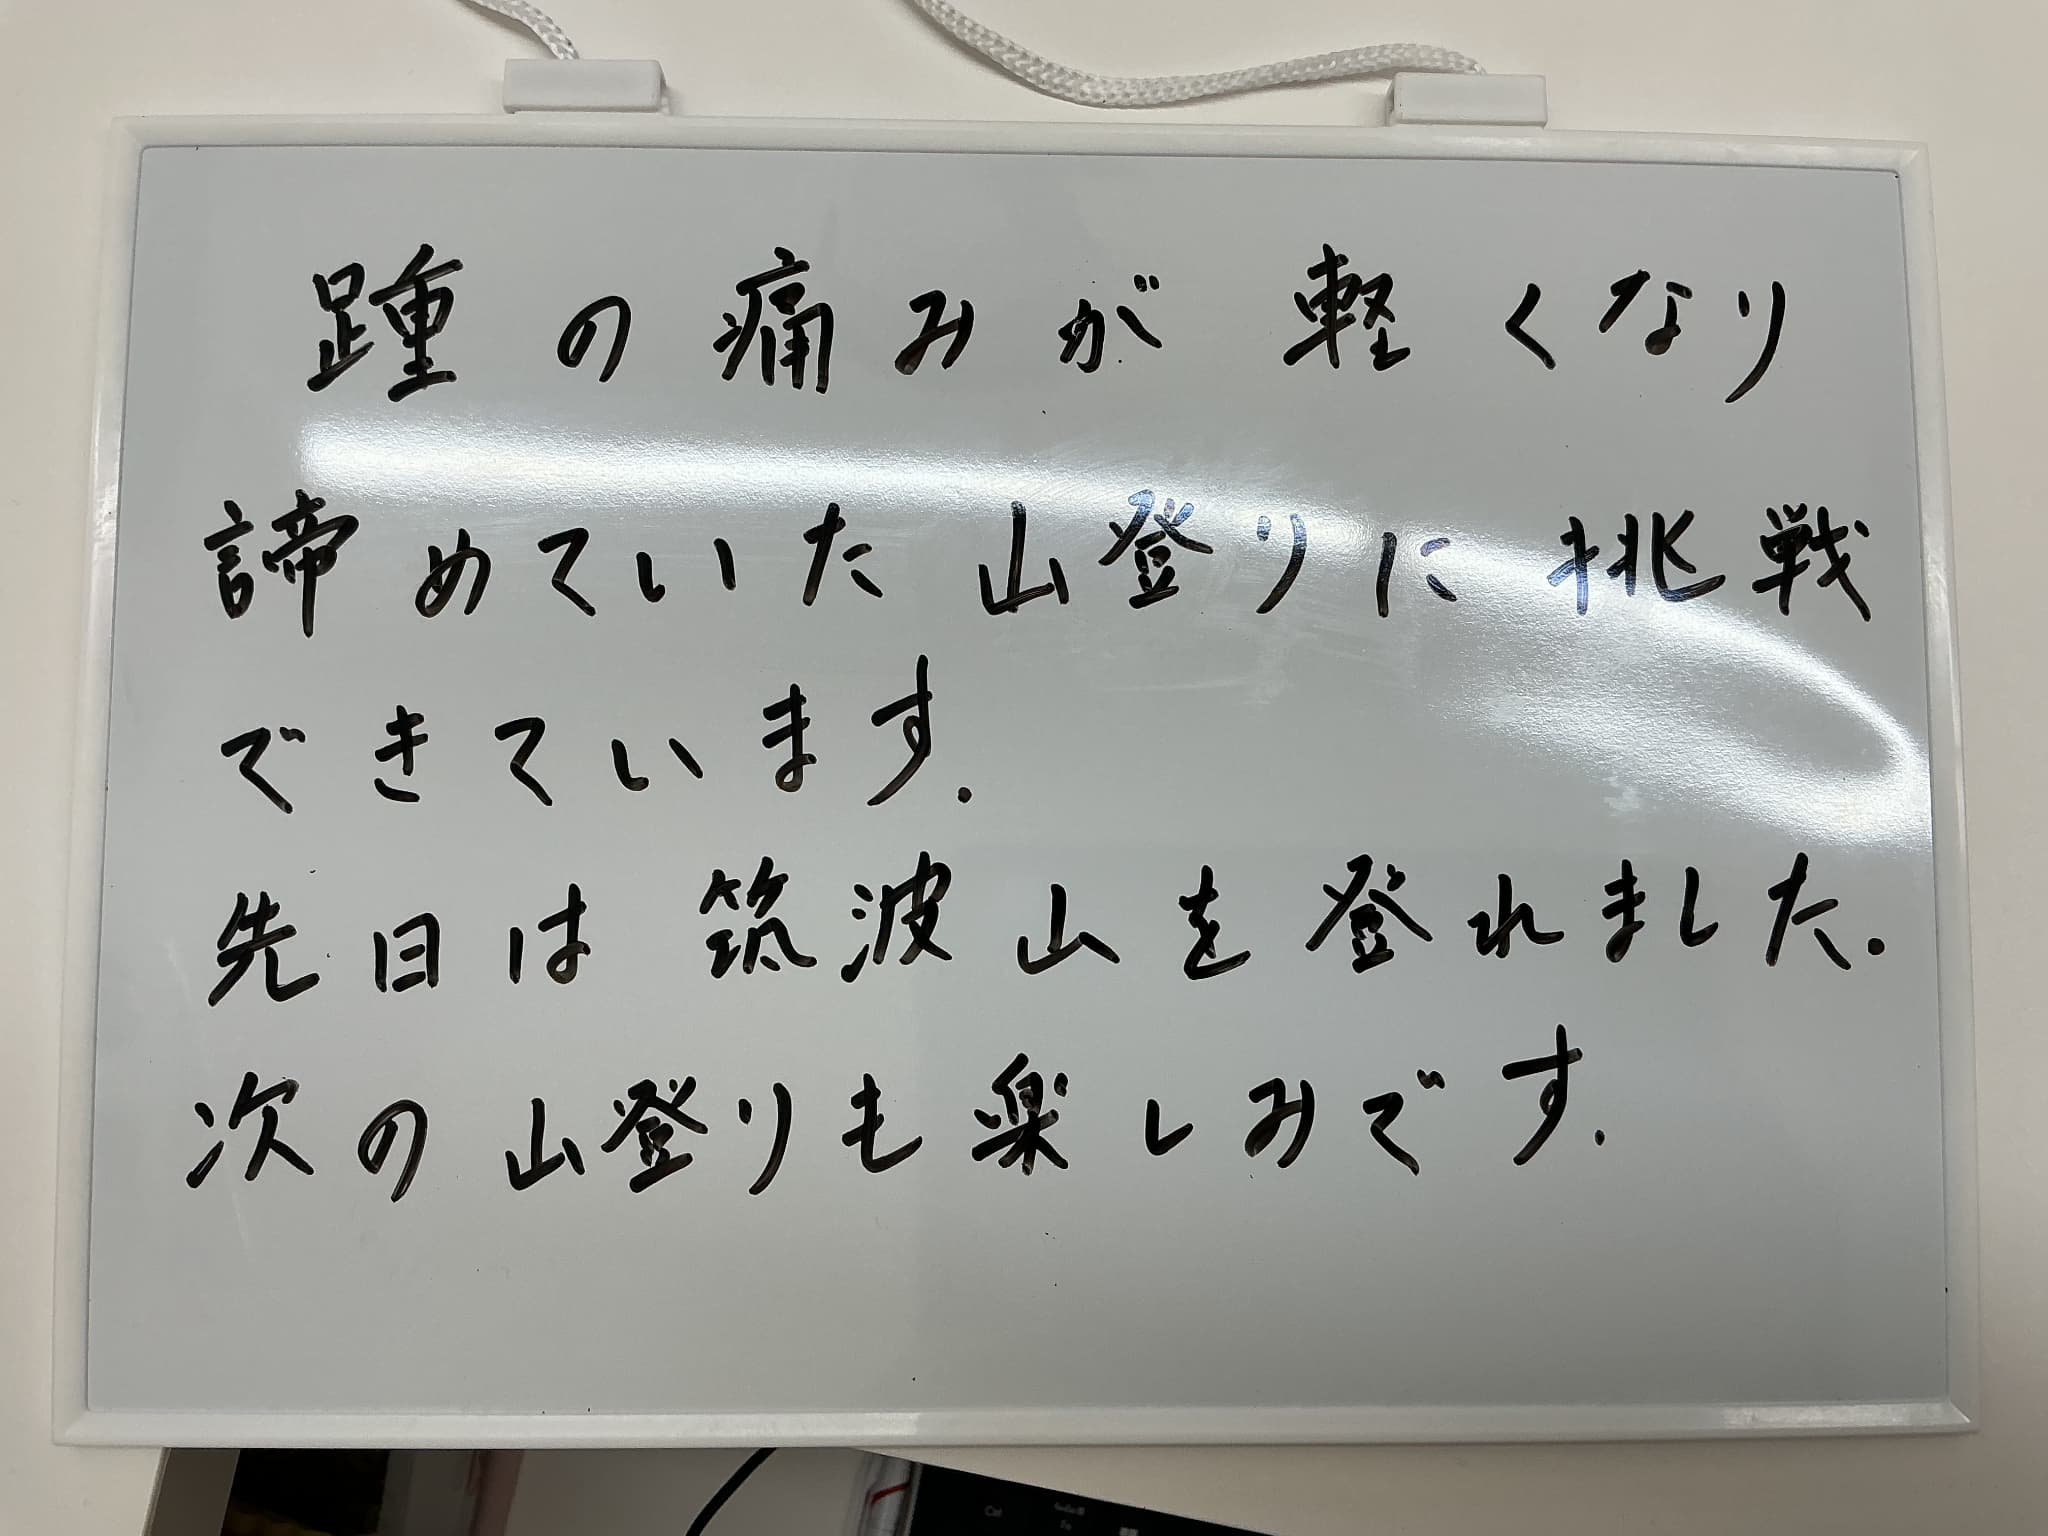 踵の痛みが軽くなり
諦めていた山登りに挑戦
できています.
先日は筑波山を登れました.
次の山登りも楽しみです.
Ctrl